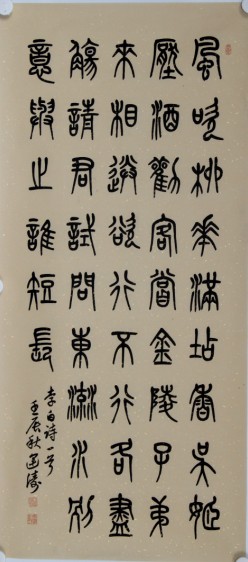 風吹柳華滿坫香吳姬
壓酒勸客嘗金陵子弟
來相送欲行不行各盡
觴請君試問東流水別
意與之誰短長
李白诗一首
壬辰秋